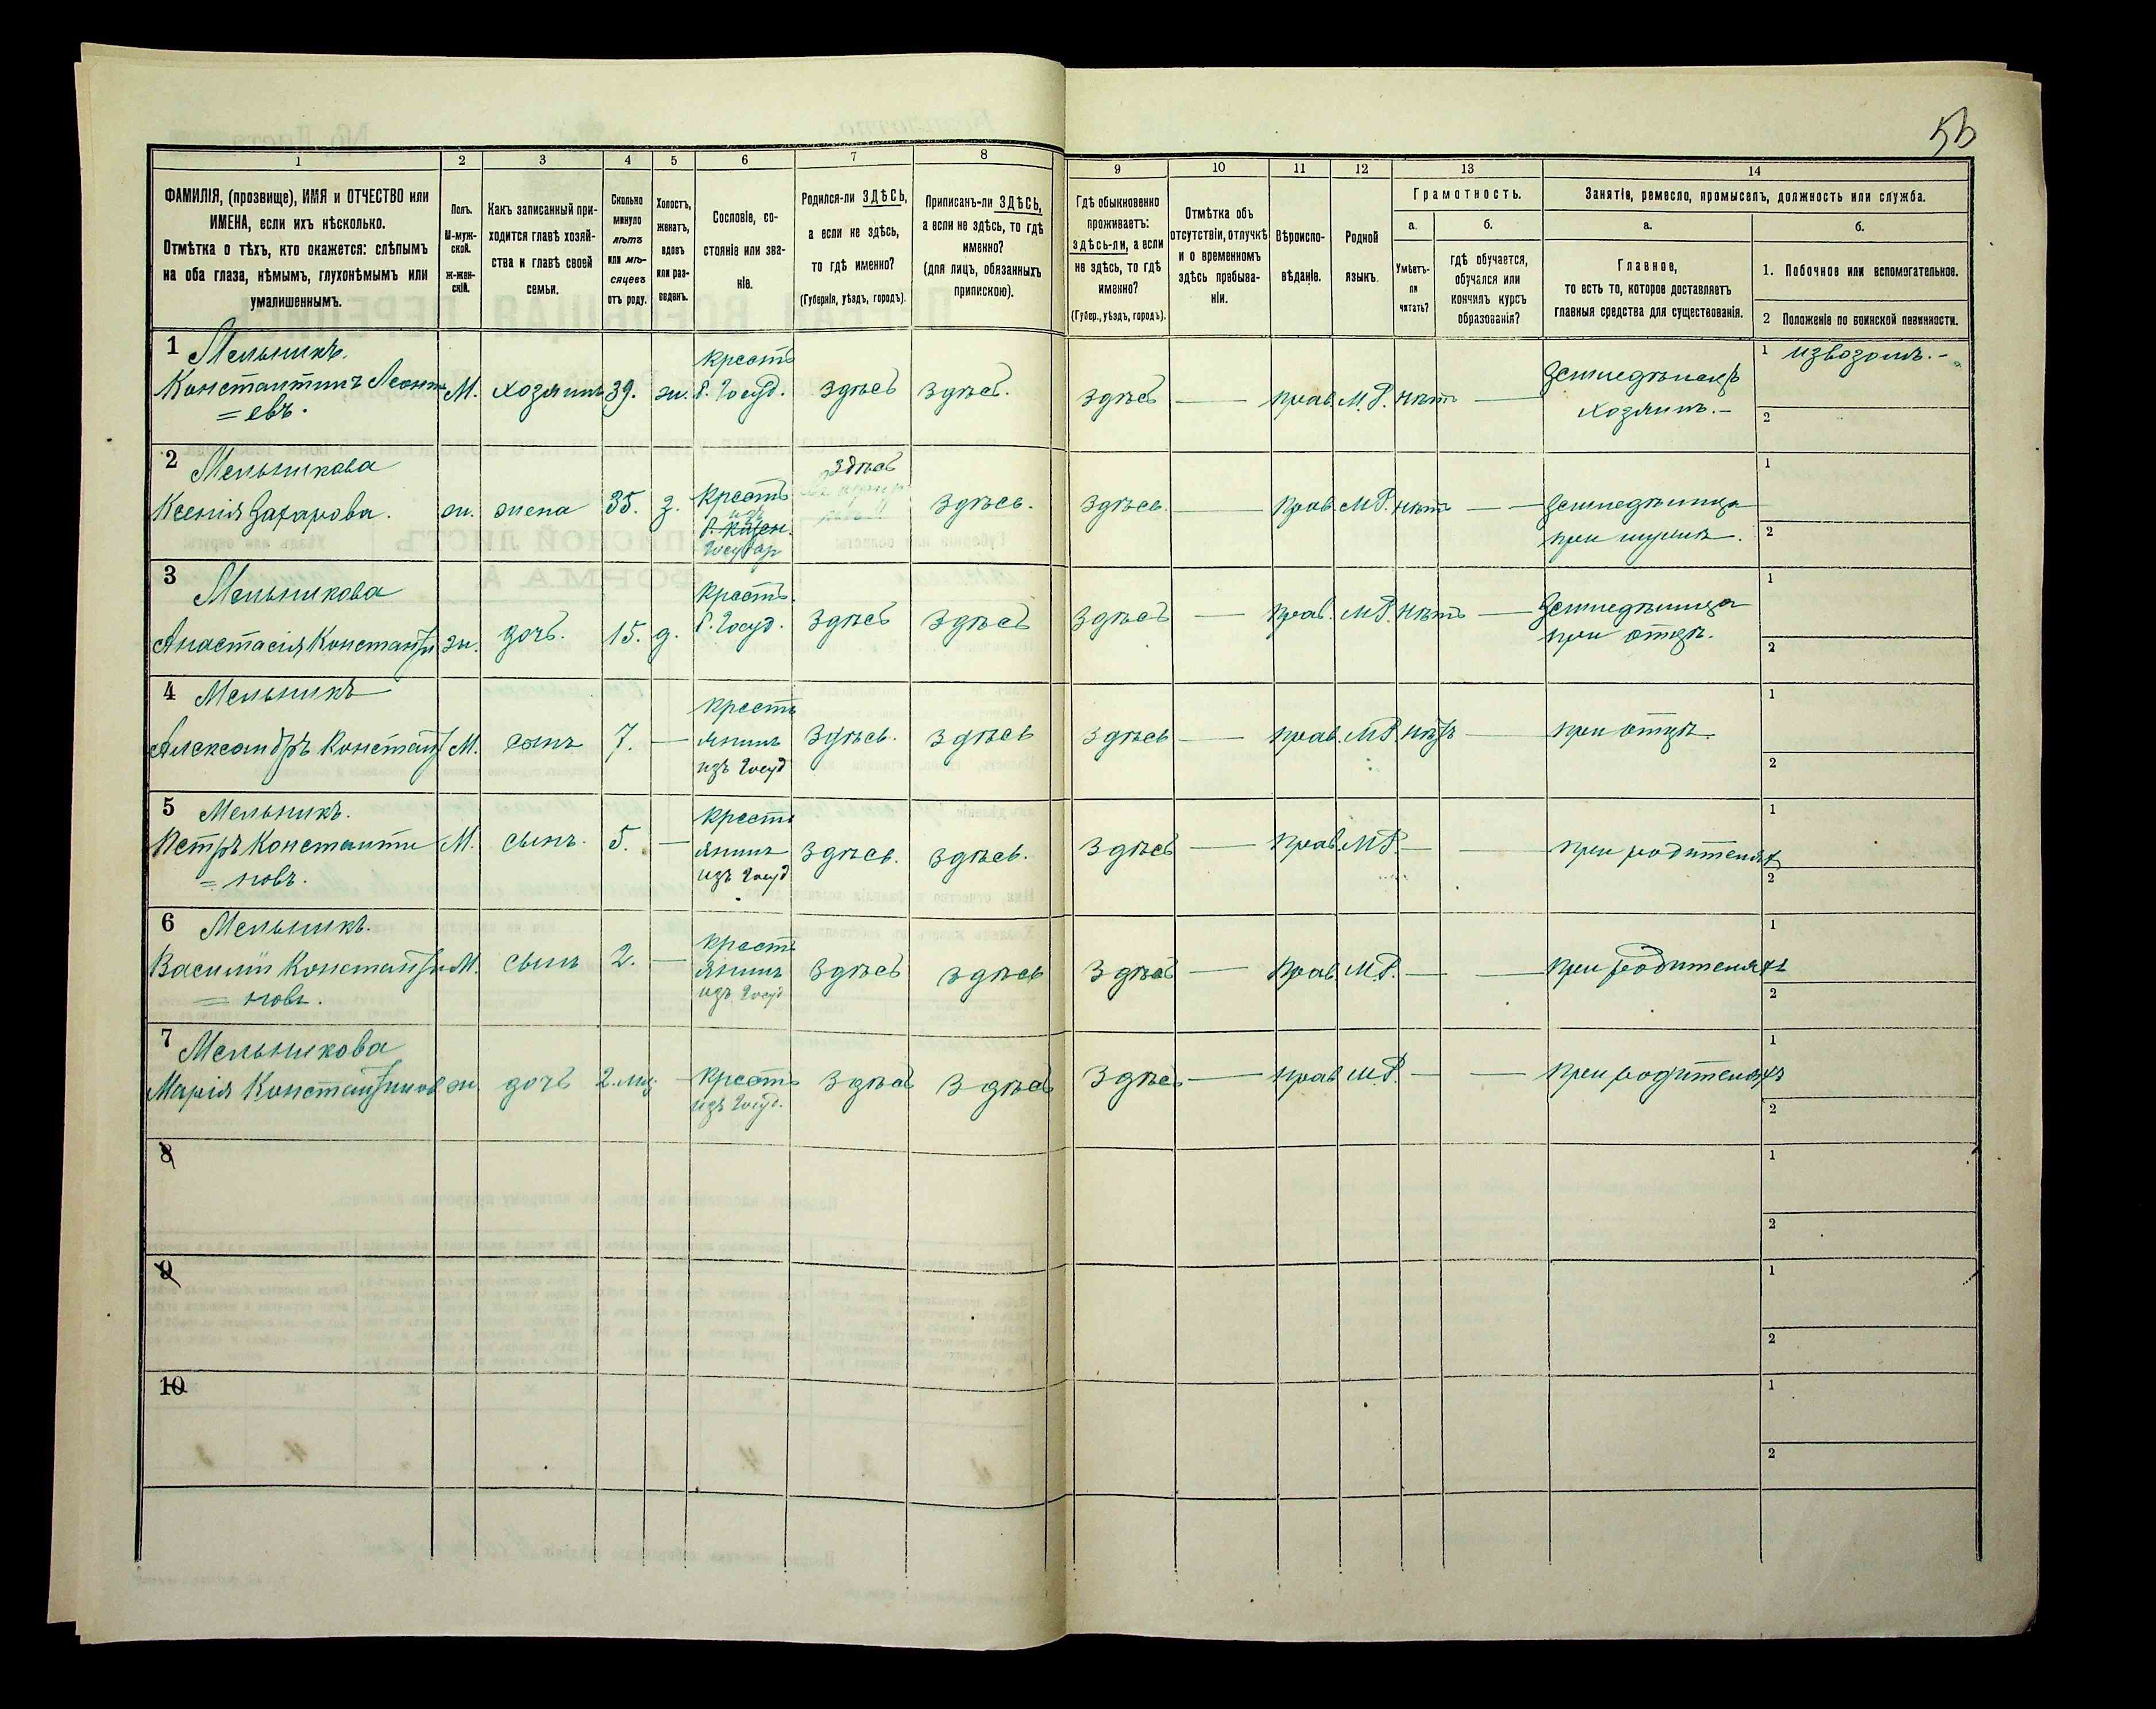 56
1 2 3 4 5 6 7 8 9 10 11 12 13 14
ФАМИЛІЯ, (прозвище), ИМЯ и ОТЧЕСТВО или
ИМЕНА, если ихъ нѣсколько.
Отмѣтка о тѣхъ, кто окажется: слѣпымъ
на оба глаза, нѣмымъ, глухонѣмымъ или
умалишеннымъ.
Полъ.
М-муж-
ской.
ж-жен-
скій.
Какъ записанный при-
ходится главѣ хозяй-
ства и главѣ своей
семьи.
Сколько
минуло
лѣтъ
или мѣ-
сяцевъ
отъ роду.
Холостъ,
женатъ,
вдовъ
или раз-
веденъ.
Сословіе, со-
стояніе или зва-
ніе.
Родился-ли ЗДѢСЬ,
а если не здѣсь,
то гдѣ именно?
(Губернія, уѣздъ, городъ).
Приписанъ-ли ЗДѢСЬ,
а если не здѣсь, то гдѣ
именно?
(для лицъ, обязанныхъ
припискою).
Гдѣ обыкновенно
проживаетъ:
здѣсь-ли, а если
не здѣсь, то гдѣ
именно?
(Губер., уѣздъ, городъ).
Отмѣтка объ
отсутствіи, отлучкѣ
и о временномъ
здѣсь пребыва-
ніи.
Вѣроиспо-
вѣданіе.
Родной
языкъ.
Грамотность.
а.
Умѣетъ-
ли
читать?
б.
гдѣ обучается,
обучался или
кончилъ курсъ
образованія?
Занятіе, ремесло, промыселъ, должность или служба.
а.
Главное,
то есть то, которое доставляетъ
главныя средства для существованія.
б.
1. Побочное или вспомогательное.
2 Положеніе по воинской повинности.
1 Мельникъ.
Константинъ Леонті
= евъ.
М. хозяинъ 39. ж.
крестъ
Г. Госуд.
здѣсь здѣсь. здѣсь — прав. М.Р. нѣтъ —
Земледѣлецъ
хозяинъ.-
1 извозомъ.-
2
2 Мельникова
Ксенія Захарова.
ж. жена 35. з.
крестъ
изъ
Государ
здѣсь
здѣсь. здѣсь. — прав. М.Р. нѣтъ —
Земледѣлица
при мужѣ.
1
2
3 Мельникова
Анастасія Констант
ж. дочь. 15. д.
крестъ.
Г. Госуд.
здѣсь здѣсь здѣсь — прав. М.Р. нѣтъ —
Земледѣлица
при отцѣ.
1
2
4 Мельникъ
Александръ Констант
М. сынъ 7. —
крестъ
янинъ
изъ Госуд
здѣсь. здѣсь здѣсь — прав. М.Р. нѣтъ —
при отцѣ.
1
2
5 Мельникъ.
Петръ Константи
= новъ.
М. сынъ. 5. —
крестъ
янинъ
изъ Госуд
здѣсь. здѣсь. здѣсь — прав. М.Р. — —
при родителях
1
2
6 Мельникъ.
Василій Константи
= новъ.
М. сынъ 2. —
крестъ
янинъ
изъ Госуд
здѣсь здѣсь здѣсь — прав. М.Р. — —
при родителяхъ
1
2
7 Мельникова
Марія Константинов
ж. дочь 2. мц. —
крестъ
изъ Госуд.
здѣсь здѣсь здѣсь — прав М.Р. — —
при родителяхъ
1
2
8
1
2
9
1
2
10
1
2